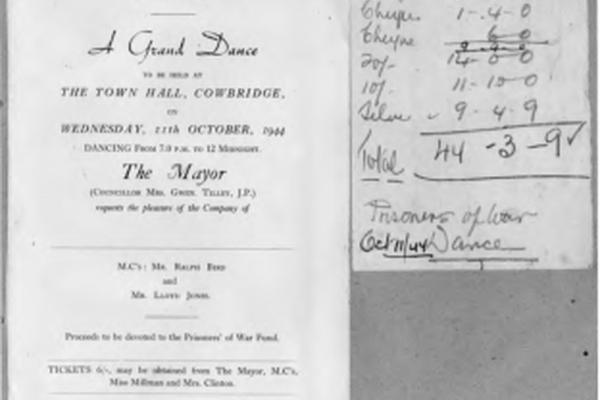 A Grand Dance
TO BE HELD AT
THE TOWN HALL, COWBRIDGE,
ON
WEDNESDAY, 11th OCTOBER, 1944
DANCING FROM 7.0 P.M. TO 12 MIDNIGHT.
The Mayor
(COUNCILLOR MRS. GWEN TILLEY, J.P.)
requests the pleasure of the Company of
M.C's: MR. RALPH BIRD
and
MR. LLOYD JONES.
Proceeds to be devoted to the Prisoners' of War Fund.
TICKETS 6/-, may be obtained from The Mayor, M.C's,
Miss Millman and Mrs. Clinton.
1-4-0
6-0
20/- 14-0-0
10/- 11-10-0
Silver 9-4-9
Total 44-3-9 ✓
Prisoners of War
Oct 11/44 Dance